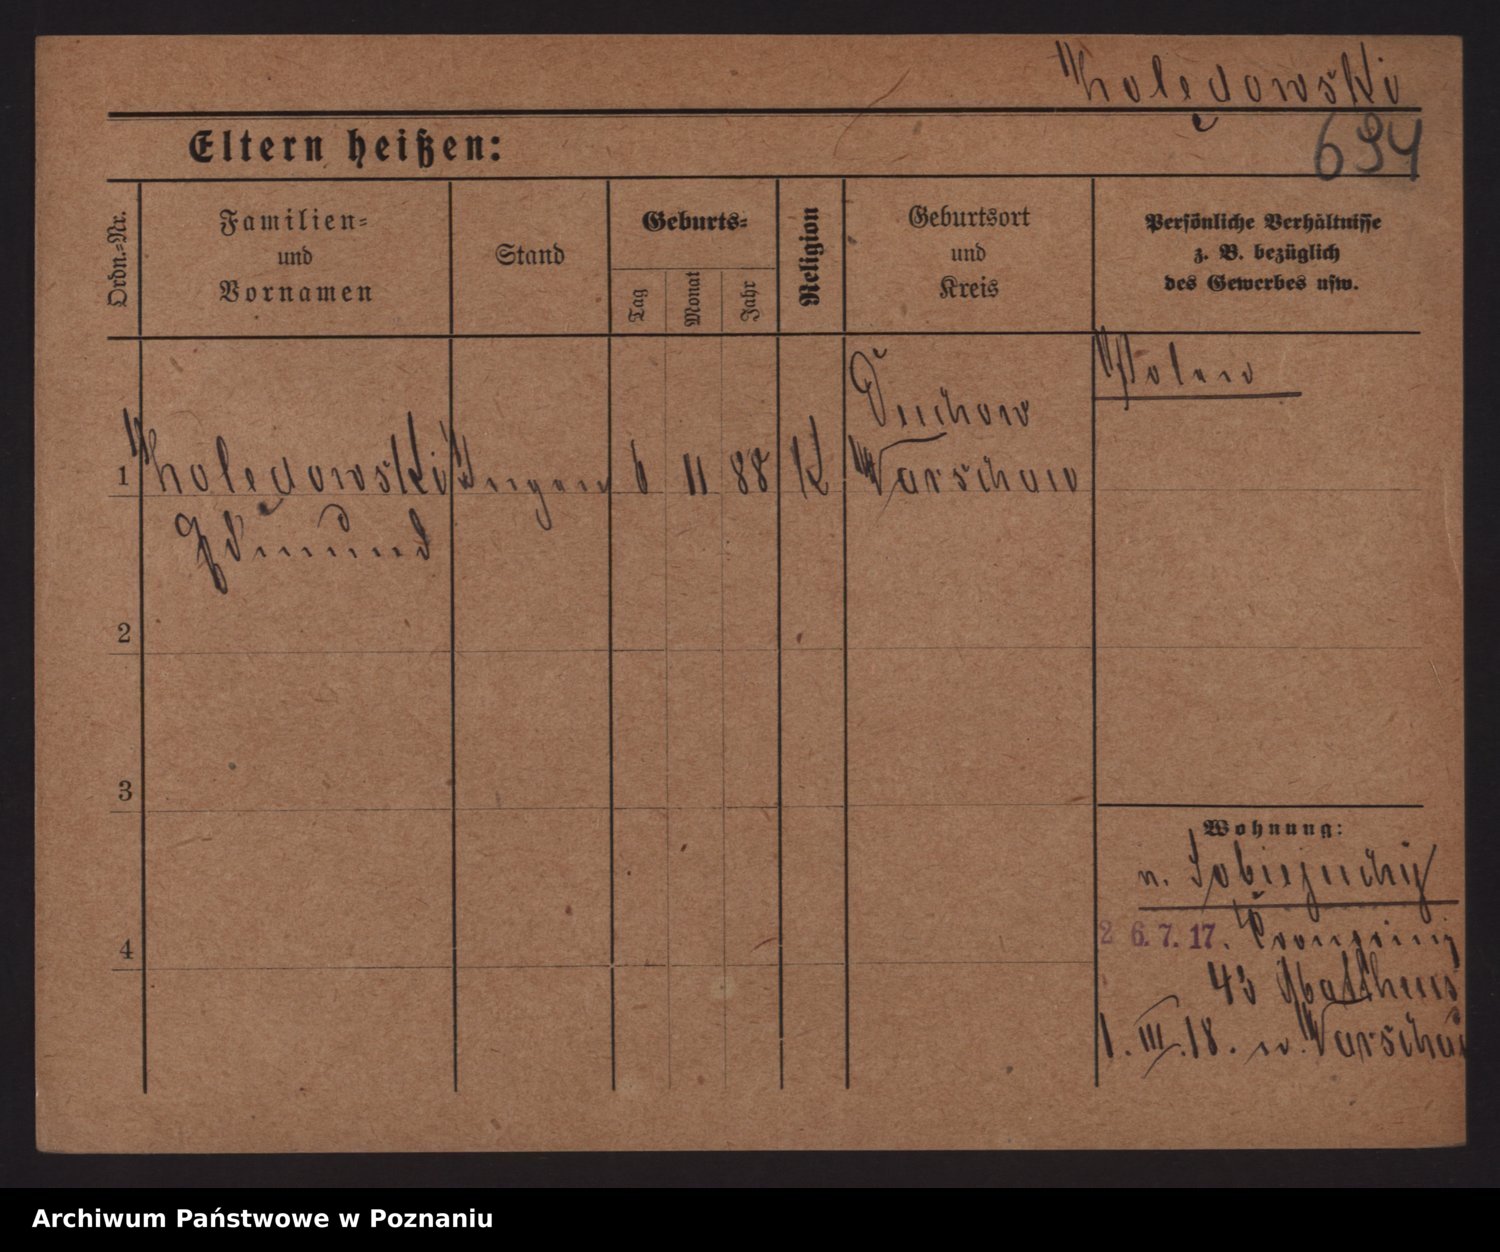 Kolędowski
694
Eltern heißen:
Ordn.-Nr.
Familien-
und
Vornamen
Stand
Geburts-
Tag
Monat
Jahr
Religion
Geburtsort
und
Kreis
Persönliche Verhältnisse
z. B. bezüglich
des Gewerbes usw.
Polen
1 Kolędowski 6 11 88 K Warschau
Edmund
2
3
Wohnung:
n. Sobiejuchy
4
26. 7. 17.
43 Mattheus
1. III. 18. n. Warschau
Archiwum Państwowe w Poznaniu